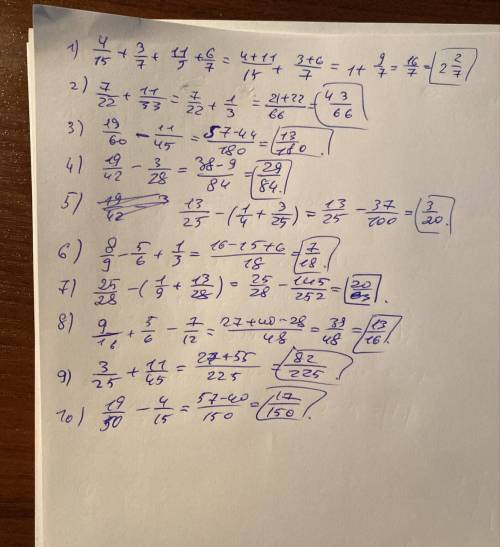 1) 4/15 + 3/7 + 11/5 + 6/7 = (4+11)/15 + (3+6)/7 = 1 + 9/7 = 16/7 = 2 2/7
2) 7/22 + 11/33 = 7/22 + 1/3 = (21+22)/66 = 43/66
3) 19/60 - 11/45 = (57-44)/180 = 13/180.
4) 19/42 - 3/28 = (38-9)/84 = 29/84.
5) 13/25 - (1/4 + 3/25) = 13/25 - 37/100 = 3/20.
6) 8/9 - 5/6 + 1/3 = (16-15+6)/18 = 7/18.
7) 25/28 - (1/9 + 13/28) = 25/28 - 145/252 = 20/63.
8) 9/16 + 5/6 - 7/12 = (27+40-28)/48 = 39/48 = 13/16.
9) 3/25 + 11/45 = (27+55)/225 = 82/225.
10) 19/50 - 4/15 = (57-40)/150 = 17/150.